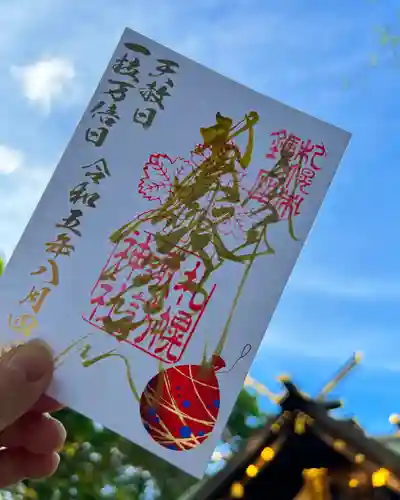 天赦日
一粒万倍日
令和五年八月四日
札幌
諏訪
神社